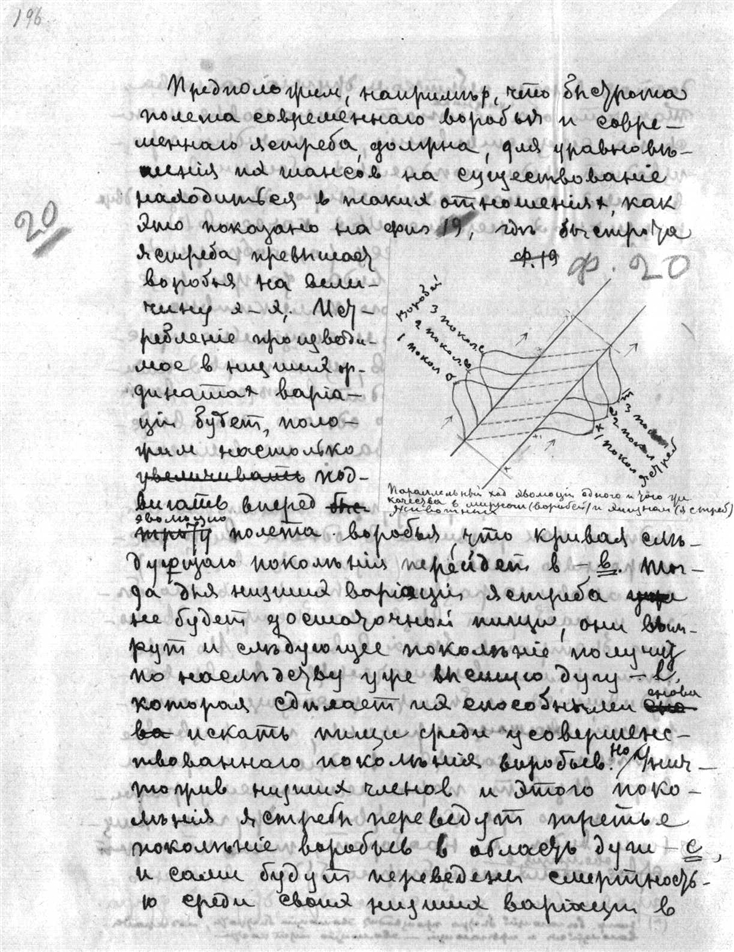 196
Предположим, например, что быстрота
полета современнаго воробья и совре-
меннаго ястреба, должна, для уравновѣ-
шенія их шансов на существованіе
находиться в таких отношениях, как
это показано на фиг 19, гдѣ быстрота
20
ястреба превышает
ф. 19 ф. 20
воробья на вели-
чину я-я,. Ист-
ребленіе производи-
мое в низших ор-
динатах варіа-
ціи будет, поло-
жим настолько
увеличивать под-
вигать вперед быс-
эволюцію
троту полета воробья что кривая слѣ-
дующаго поколѣнія перейдет в - в. Тог-
да для низших варіацій ястреба уже
не будет достаточной пищи, они вым-
рут и слѣдующее поколѣніе получит
по наслѣдству уже высшую дугу - в,
которая сдѣлает их способными сно
снова
ва искать пищи среди усовершенс-
твованнаго поколѣнія воробьев. Но Унич-
тожив низших членов и этого поко-
лѣнія ястребы переведут третье
поколѣніе воробьев в область дуги - с,
и сами будут переведены смертность-
ю среди своих низших варіации в
воробей
3 поколе
2 поколе
1 покол
3 покол
2 покол
1 покол ястреб
Параллельный ход эволюціи одного и того же
качества в мирном (воробей) и хищном (ястреб)
животных